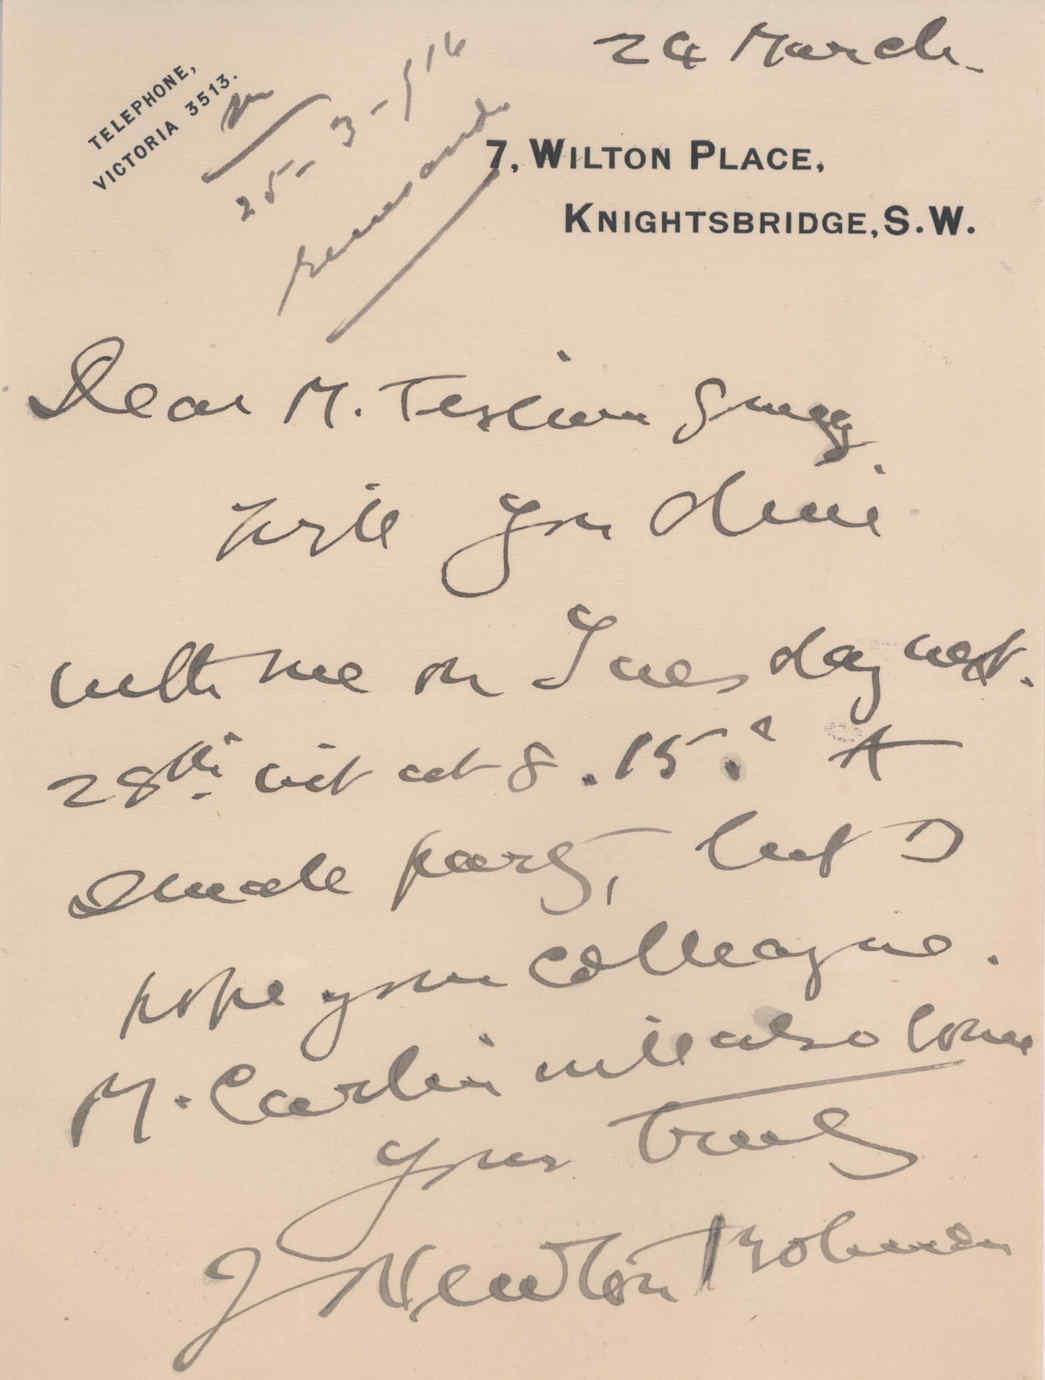 24 March.
TELEPHONE,
VICTORIA 3513.
25-3-1916
7, WILTON PLACE,
KNIGHTSBRIDGE, S.W.
Dear M.
Will you dine
with me on Tuesday next.
28th inst at 8.15? A
small party, but I
hope your colleague.
M. Cartin will also come
Yours truly
J Newton